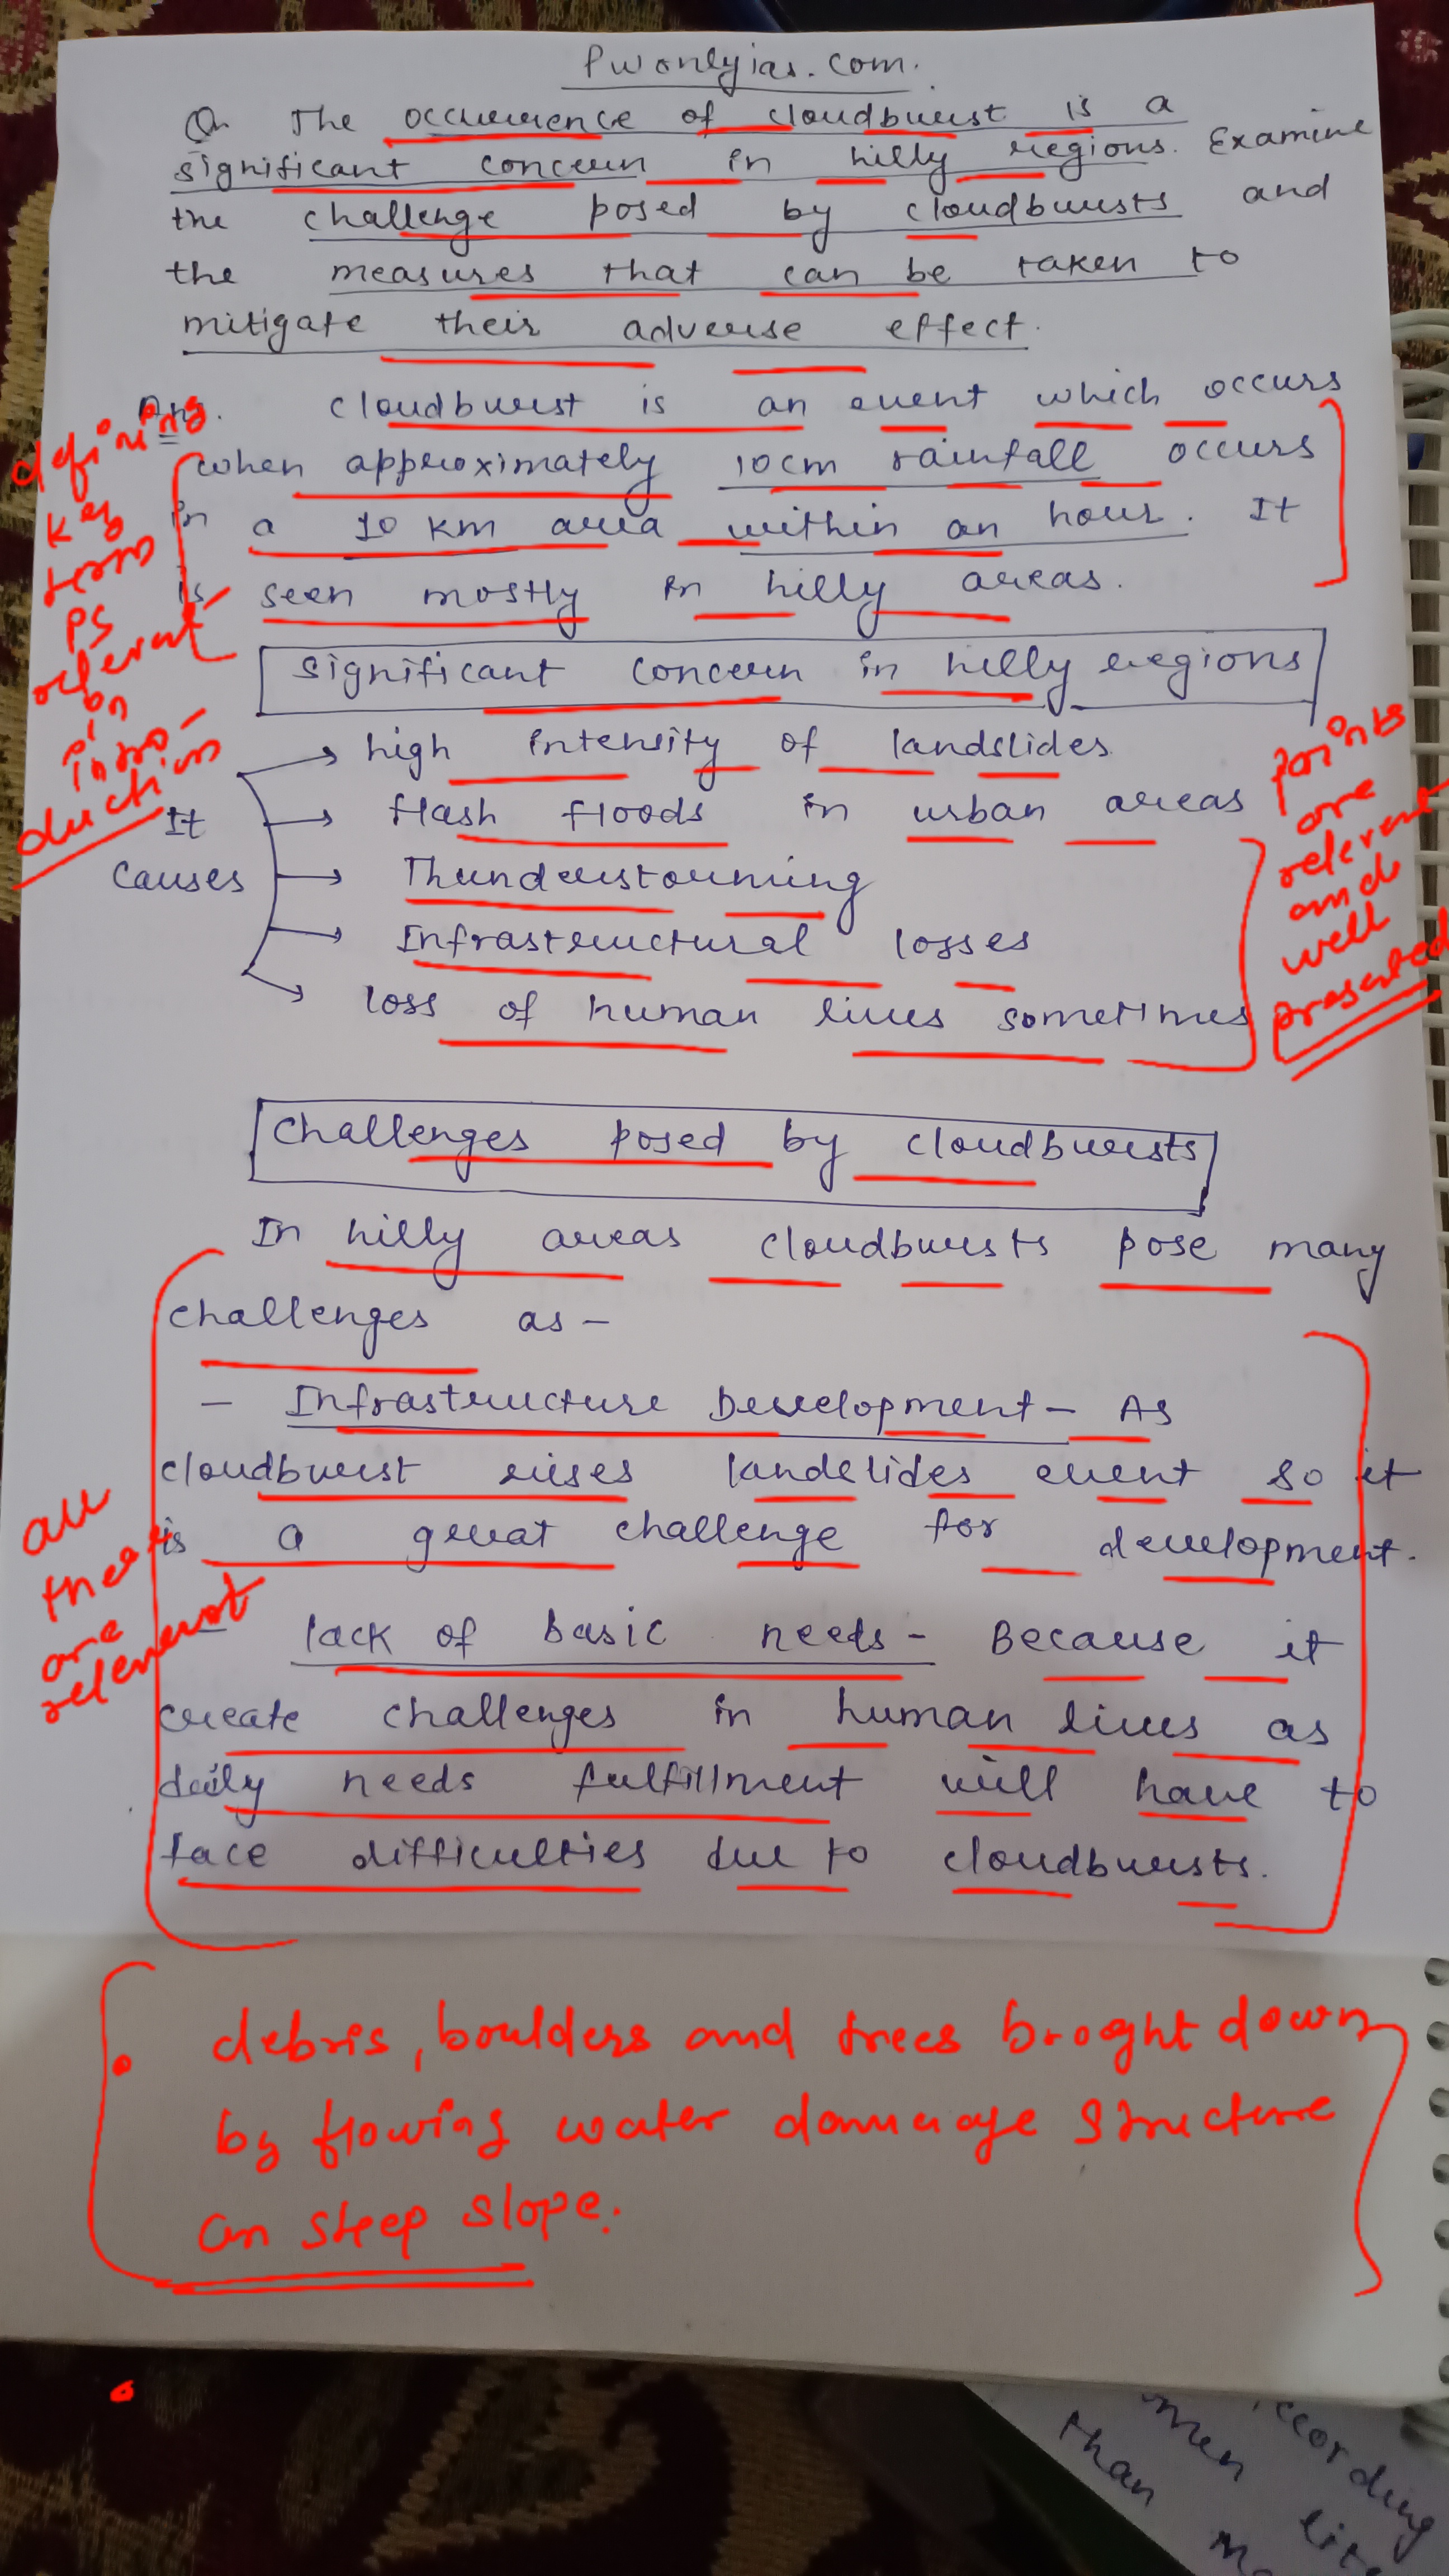 Pwonlyias.com.
Qn The occurrence of cloudburst is a
significant concern in hilly regions. Examine
the challenge posed by cloudbursts and
the measures that can be taken to
mitigate their adverse effect.
Ans. cloudburst is an event which occurs
when approximately 10cm rainfall occurs
in a 10 km area within an hour. It
is seen mostly in hilly areas.
defining
key
term
is
relevant
in
intro-
duction
Significant concern in hilly regions
It
causes
→ high intensity of landslides
→ flash floods in urban areas
→ Thunderstorming
→ Infrastructural losses
→ loss of human lives sometimes
points
are
relevant
and
well
presented
Challenges posed by cloudbursts
In hilly areas cloudbursts pose many
challenges as -
- Infrastructure Development - As
cloudburst rises landslides event so it
is a great challenge for development.
- lack of basic needs - Because it
create challenges in human lives as
daily needs fulfillment will have to
face difficulties due to cloudbursts.
all
are
relevant
• debris, boulders and trees broght down
by flowing water damage structure
on steep slope.
ccording
men lite
than